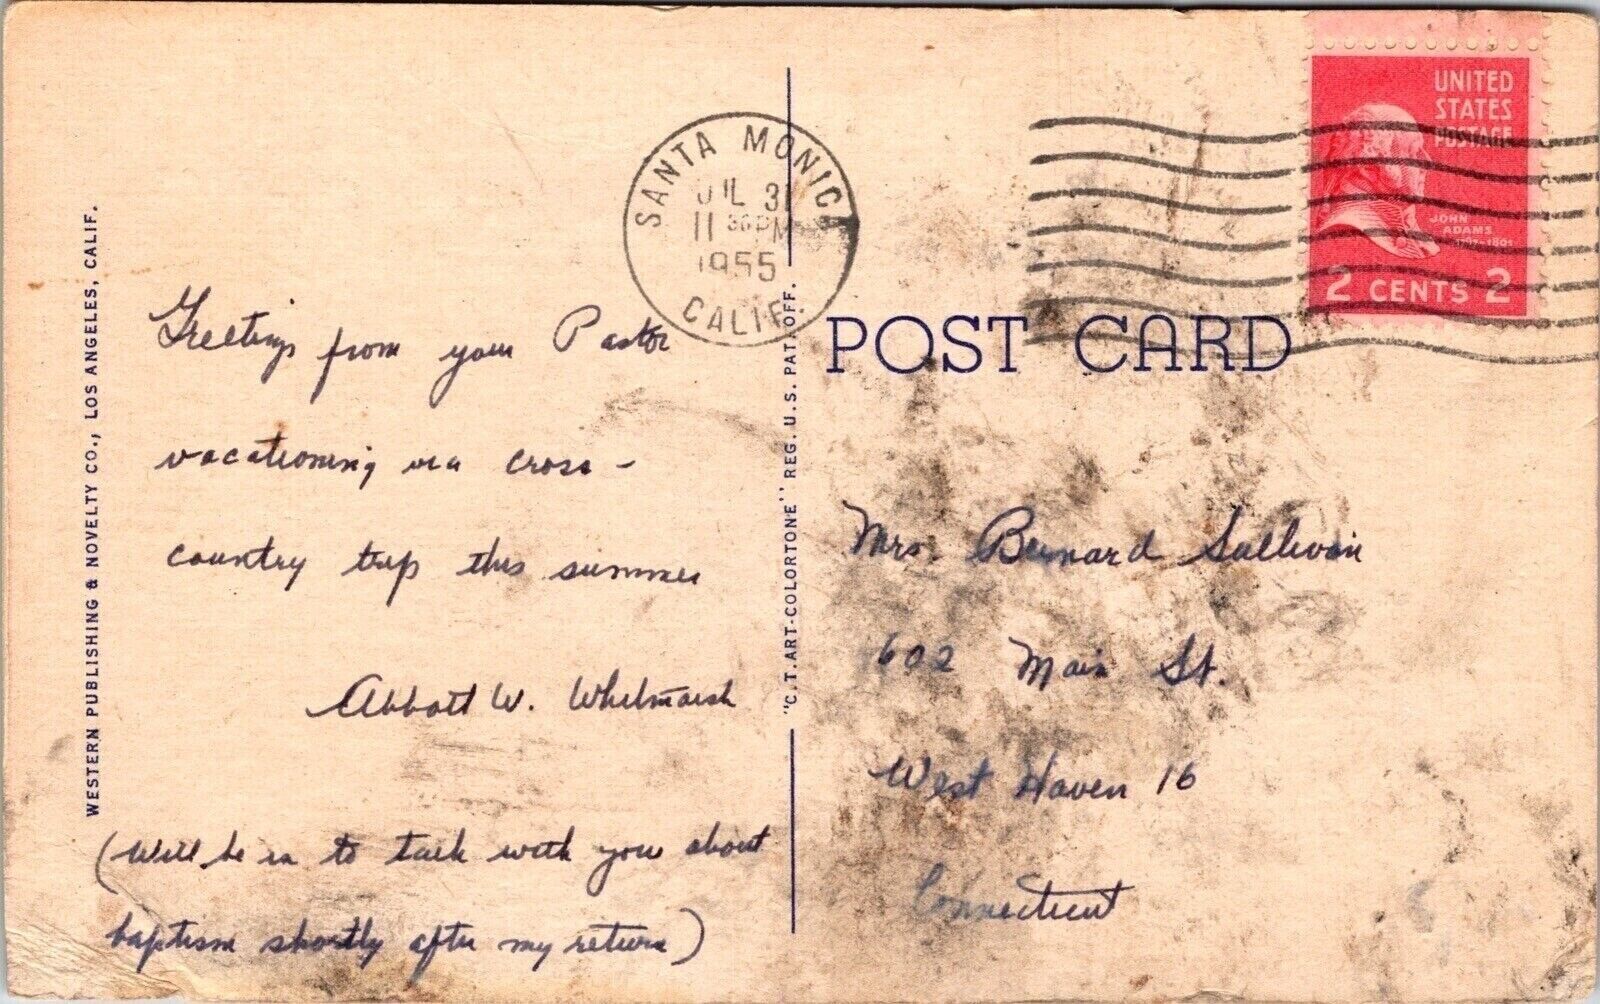 WESTERN PUBLISHING & NOVELTY CO., LOS ANGELES, CALIF.
Greetings from your Pastor
vacationing via cross-
country trip this summer
Abbott W. Whitmarsh
(Will be in to talk with you about
baptism shortly after my return)
"C.T. ART-COLORTONE" REG. U.S. PAT. OFF.
SANTA MONICA
JUL 31
11 30 PM
1955
CALIF.
POST CARD
UNITED
STATES
POSTAGE
JOHN
ADAMS
1801
2 CENTS 2
Mrs. Bernard Sullivan
602 Main St.
West Haven 16
Connecticut